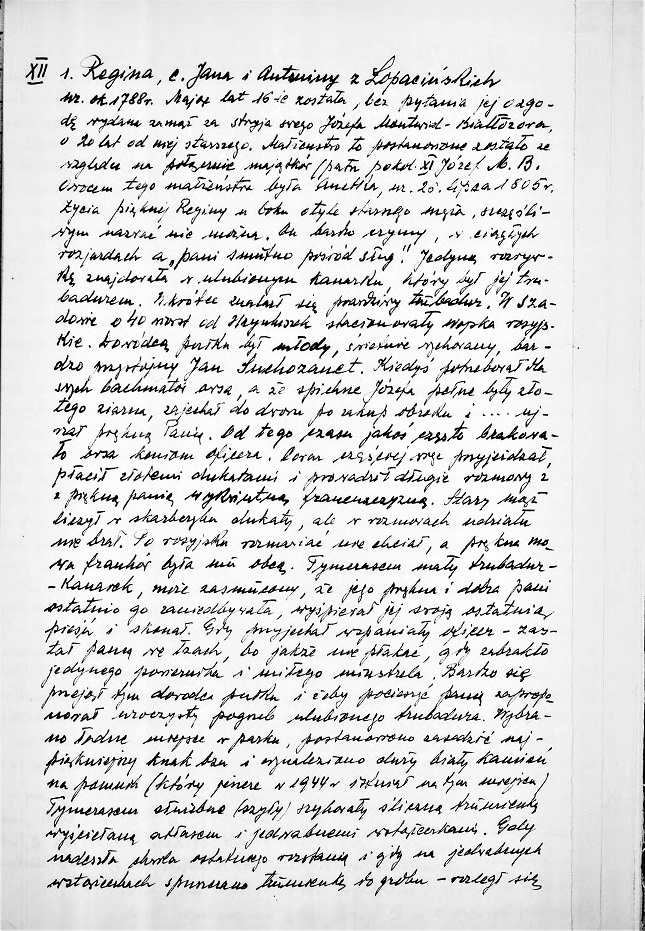 XII 1. Regina, c. Jana i Antoniny z Łopacińskich
ur. ok. 1788r. Mając lat 16-ie została, bez pytania jej o zgo-
dę wydana zamąż za stryja swego Józefa Montwid-Białłozora,
o 20 lat od niej starszego. Małżeństwo to postanowione zostało ze
względu na połączenie majątków (patrz pokol. XI Józef M. B.
Owocem tego małżeństwa była Anetka, ur. 26. lipca 1805r.
Życia pięknej Reginy u boku o tyle starszego męża, szczęśli-
wym nazwać nie można. On bardzo czynny, w ciągłych
rozjazdach a „pani smutno pośród sług." Jedyną rozryw-
kę znajdowała w ulubionym kanarku, który był jej tru-
badurem. Wkrótce znalazł się prawdziwy trubadur. W Sza-
dowie o 40 wiorst od stacjonowały wojska rosyjs-
kie. Dowódcą pułku był młody, świetnie wychowany, bar-
dzo przystojny Jan Suchozanet. Kiedyś potrzebował dla
swych bachmatów owsa, a że spichrze Józefa pełne były zło-
tego ziarna, zajechał do dworu po zakup obroku i .... uj-
rzał piękną Panią. Od tego czasu jakoś często brakowa-
ło owsa koniom oficera. Coraz częściej więc przyjeżdżał,
płacił złotemi dukatami i prowadził długie rozmowy z
z piękną panią wykwintną francuszczyzną. Stary mąż
liczył w skarbczyku dukaty, ale w rozmowach udziału
nie brał. Po rosyjsku rozmawiać nie chciał, a piękna mo-
wa franków była mu obcą. Tymczasem mały trubadur-
-Kanarek, może zasmucony, że jego piękna i dobra pani
ostatnio go zaniedbywała, wyśpiewał jej swoją ostatnią
pieśń i skonał. Gdy przyjechał wspaniały oficer - zas-
tał panią we łzach, bo jakże nie płakać, gdy zabrakło
jedynego powiernika i miłego minstrela. Bardzo się
przejął tym dowódca pułku i żeby pocieszyć panią zapropo-
nował uroczysty pogrzeb ulubionego trubadura. Wybra-
no ładne miejsce w parku, postanowiono zasadzić naj-
piękniejszy krzak bzu i wynaleziono duży biały kamień
na pomnik (który jeszcze w 1944r istniał na tym miejscu)
Tymczasem służebne (szyły) szykowały śliczną trumienkę
wyścielaną atłasem i jedwabnemi wstążeczkami. Gdy
nadeszła chwila ostatniego rozstania i gdy na jedwabnych
wstążeczkach spuszczano trumienkę do grobu - rozległ się